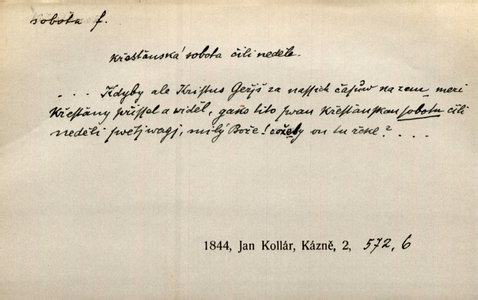 sobota f.
křesťanská sobota čili neděle.
. . . Kdyby ale Kristus Gežjš za nassich časůw na zem, mezi
Křesťany přissel a widěl, gako tito swau Křesťanskau sobotu čili
neděli swětjwagj, milý Bože! cožeby on tu řekl? . . .
1844, Jan Kollár, Kázně, 2, 572,6